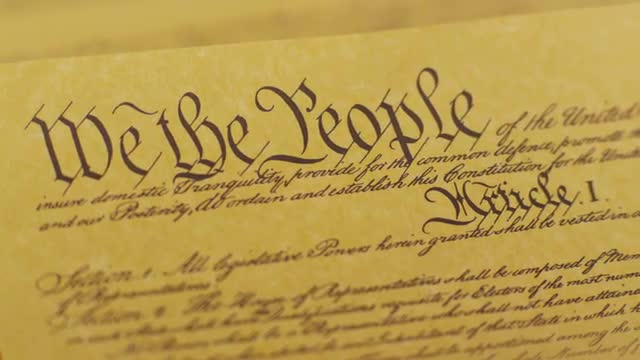 We the People of the United
insure domestic Tranquility, provide for the common defence, promote
and our Posterity, do ordain and establish this Constitution for the United
Article. I.
Section 1. All legislative Powers herein granted shall be vested in
of Representatives.
Section 2. The House of Representatives shall be composed of Mem
requisite for Electors of the most num
who shall not have attained
of that State in which